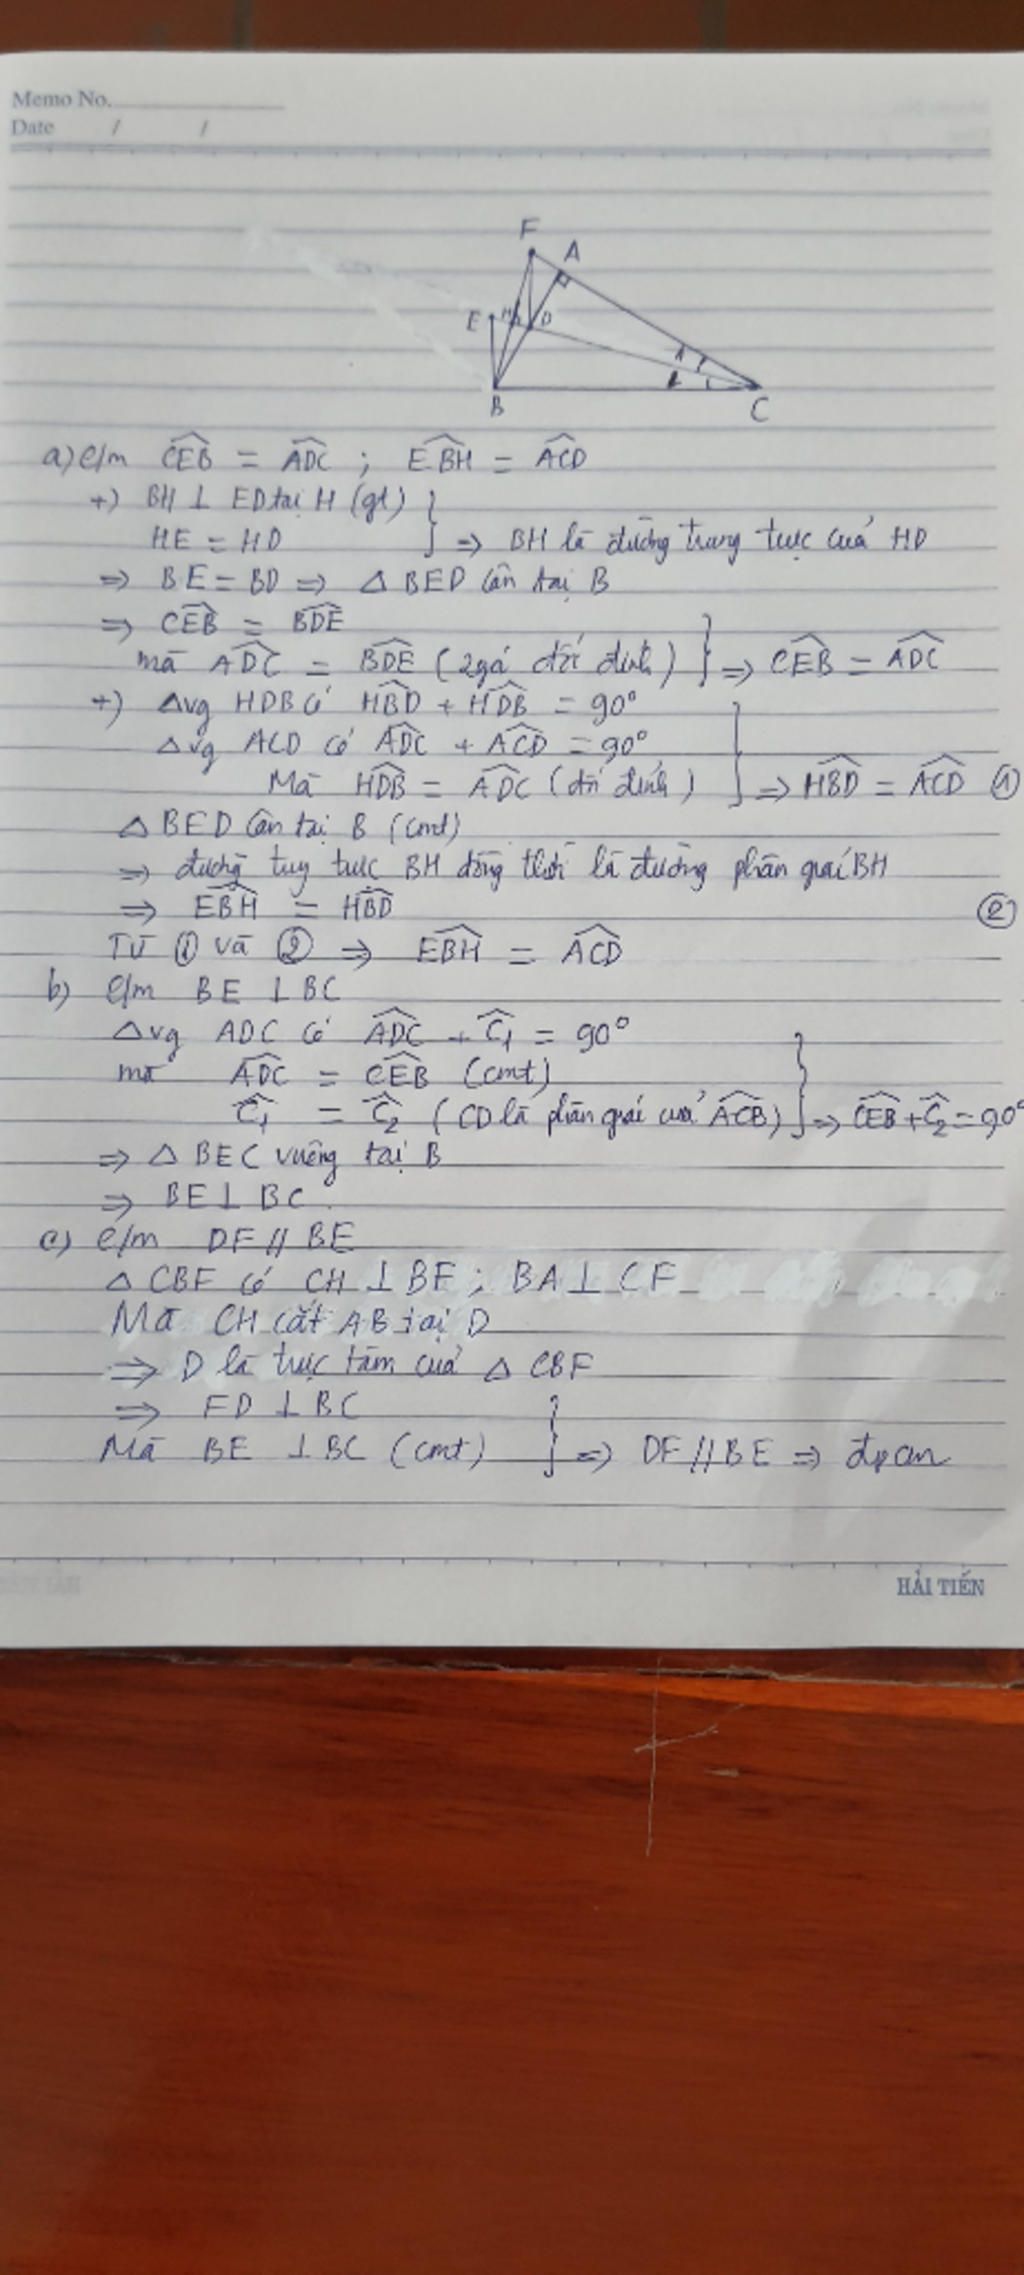 Memo No.
Date / /
F
A
E H D
1
2
B
C
a) c/m CEB̂ = ADĈ ; EBĤ = ACD̂
+) BH ⊥ ED tại H (gt)
HE = HD } => BH là đường trung trực của HD
=> BE = BD => △ BED cân tại B
=> CEB̂ = BDÊ
mà ADĈ = BDÊ (2 góc đối đỉnh) } => CEB̂ = ADĈ
+) △vg HDB có HBD̂ + HDB̂ = 90°
△vg ACD có ADĈ + ACD̂ = 90°
Mà HDB̂ = ADĈ (đối đỉnh) } => HBD̂ = ACD̂ ①
△ BED cân tại B (cmt)
=> đường trực BH đồng thời là đường phân giác BH
=> EBĤ = HBD̂ ②
Từ ① và ② => EBĤ = ACD̂
b) c/m BE ⊥ BC
△vg ADC có ADĈ + Ĉ₁ = 90°
mà ADĈ = CEB̂ (cmt)
Ĉ₁ = Ĉ₂ (CD là phân giác của ACB̂) } => CEB̂ + Ĉ₂ = 90°
=> △ BEC vuông tại B
=> BE ⊥ BC
c) c/m DF // BE
△ CBF có CH ⊥ BF ; BA ⊥ CF
Mà CH cắt AB tại D
=> D là trực tâm của △ CBF
=> FD ⊥ BC
Mà BE ⊥ BC (cmt) } => DF // BE => đpcm
HẢI TIẾN